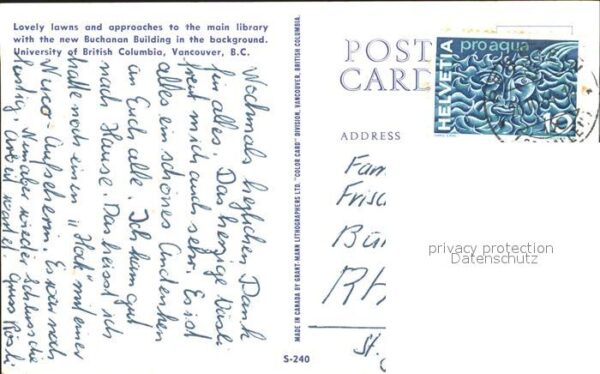 Lovely lawns and approaches to the main library
with the new Buchanan Building in the background.
University of British Columbia, Vancouver, B.C.
Nochmals herzlichen Dank
für alles. Das herzige Vrösli
freut mich auch sehr. Es ist
alles ein schönes Andenken
an Euch alle. Ich kam gut
nach Hause. Das heisst ich
hatte noch einen "Hock" mit einer
Aufseherin. Es war noch
lustig. Nun aber wieder Schluss die
Arbeit wartet. Gruss Rösli
MADE IN CANADA BY GRANT-MANN LITHOGRAPHERS LTD. "COLOR CARD" DIVISION, VANCOUVER, BRITISH COLUMBIA.
S-240
POST
CARD
HELVETIA
pro aqua
10
ADDRESS
Fam
Frisc
Bün
Rh
St.
privacy protection
Datenschutz